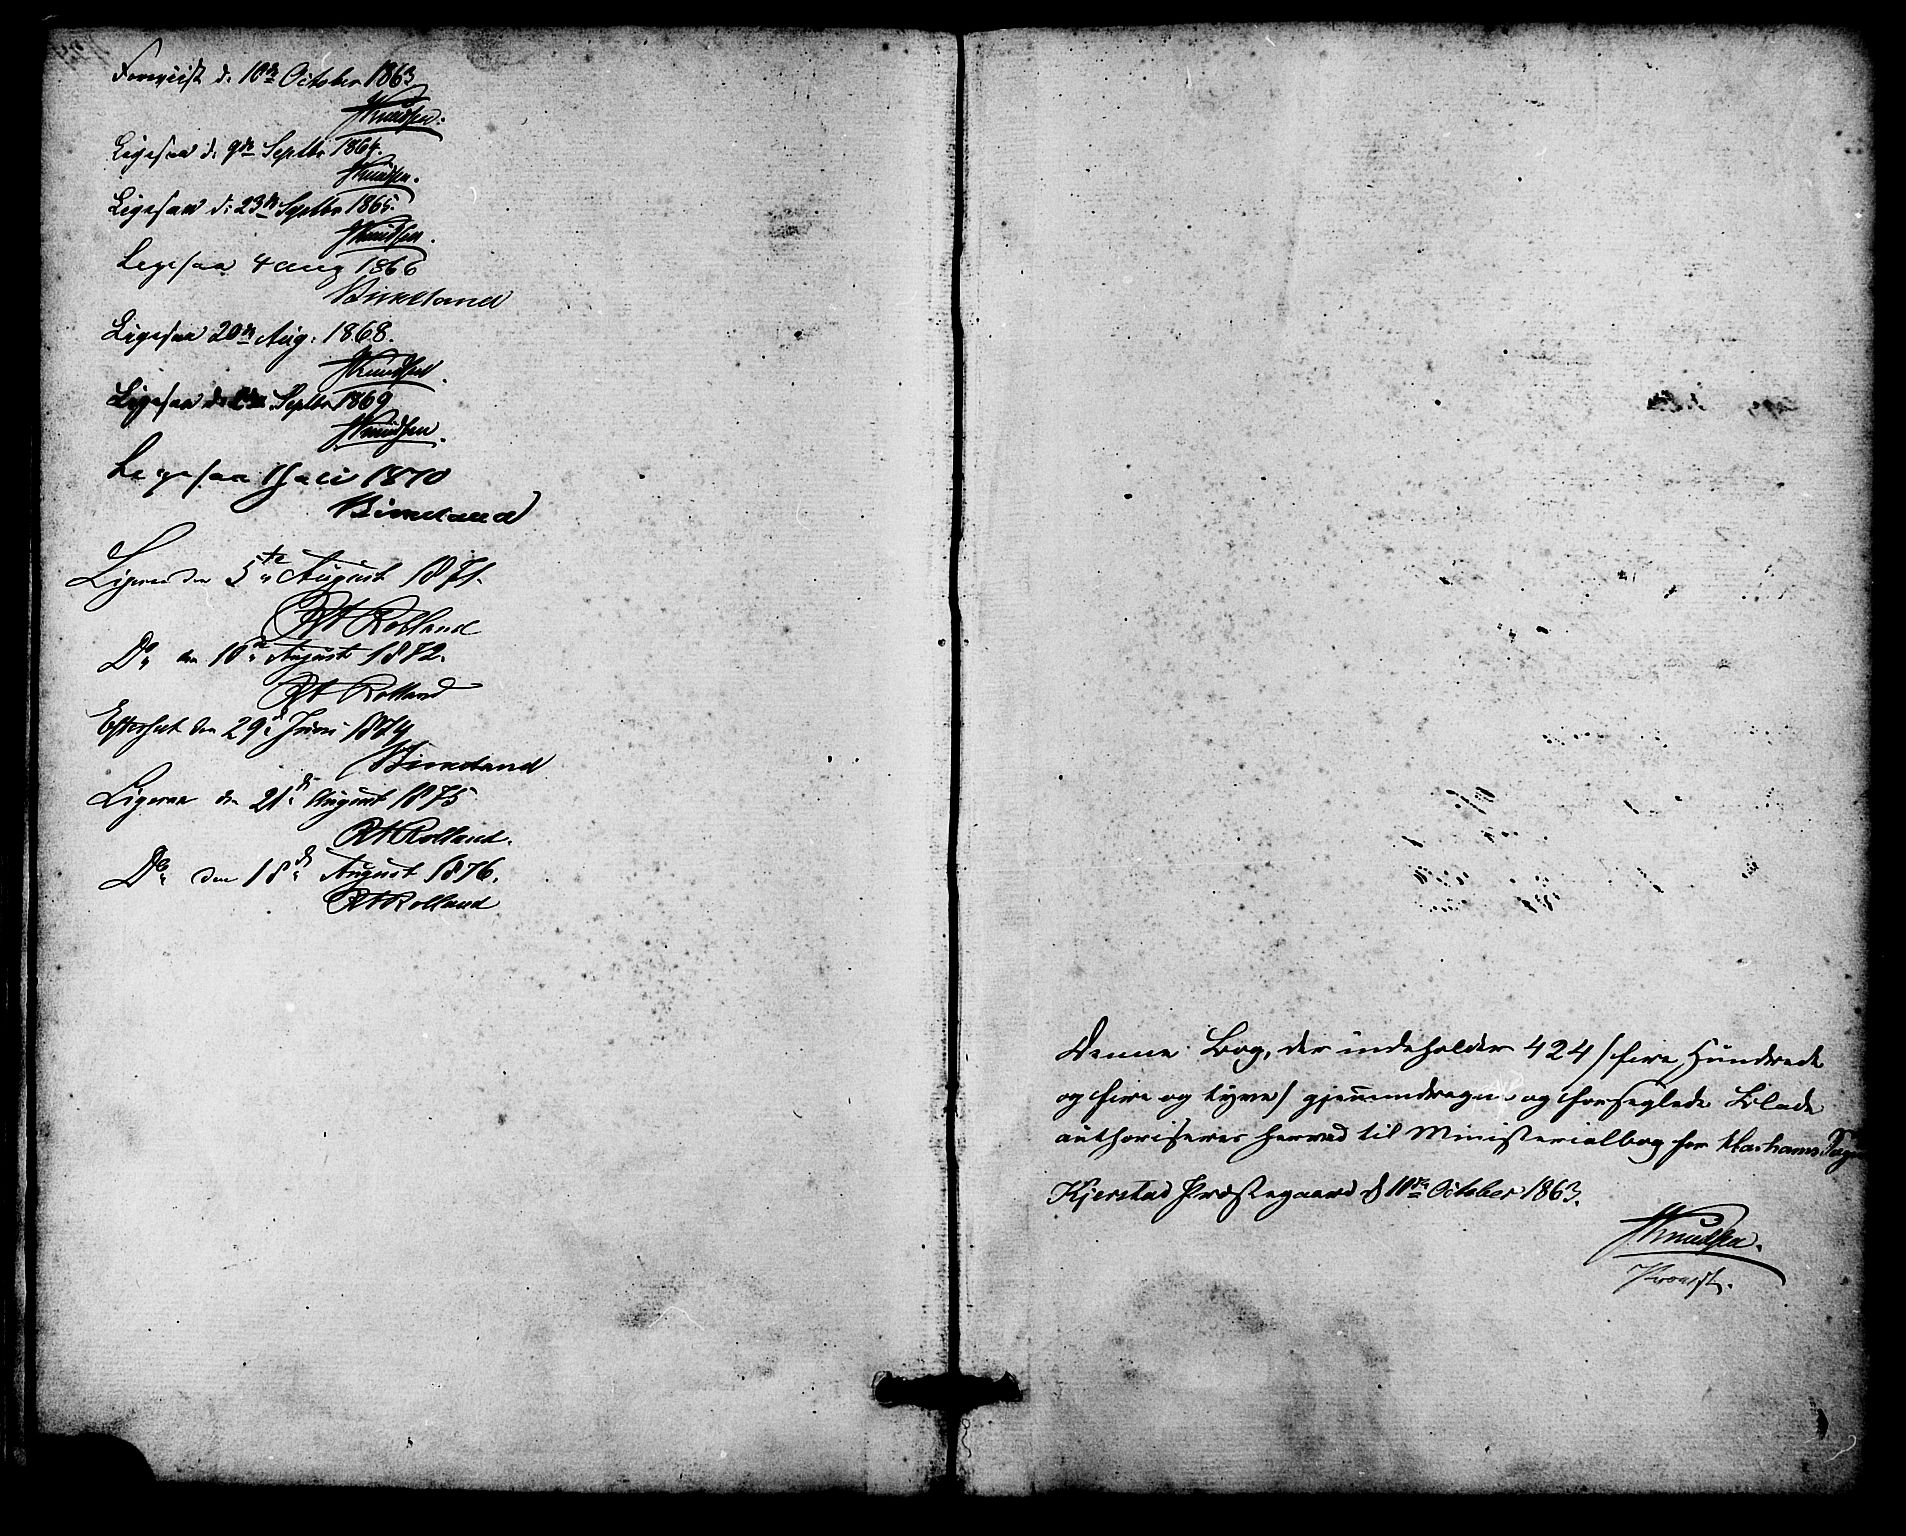 Foreviist d. 10de October 1863
JKnudsen.
Ligesaa d. 9de Septbr 1864.
JKnudsen.
Ligesaa d. 23de Septbr 1865.
JKnudsen.
Ligesaa 4 aug 1866
Birkeland
Ligesaa 20de Aug. 1868.
JKnudsen.
Ligesaa d. Septbr 1869
JKnudsen.
Ligesaa 1 Juli 1870
Birkeland
Ligesaa den 5te August 1871.
Rolland
Do den 10de August 1872.
Rolland
Efterseet den 29de Juni 1874
Birkeland
Ligesaa den 21de August 1875
Rolland.
Do den 18de August 1876.
Rolland
Denne Bog, der indeholder 424 /fire Hundrede
og fire og tyve/ gjennemdragne og forseglede Blade
authoriseres herved til Ministerialbog for Harhams
Kjerstad Præstegaard d 10de October 1863.
JKnudsen.
Provst.